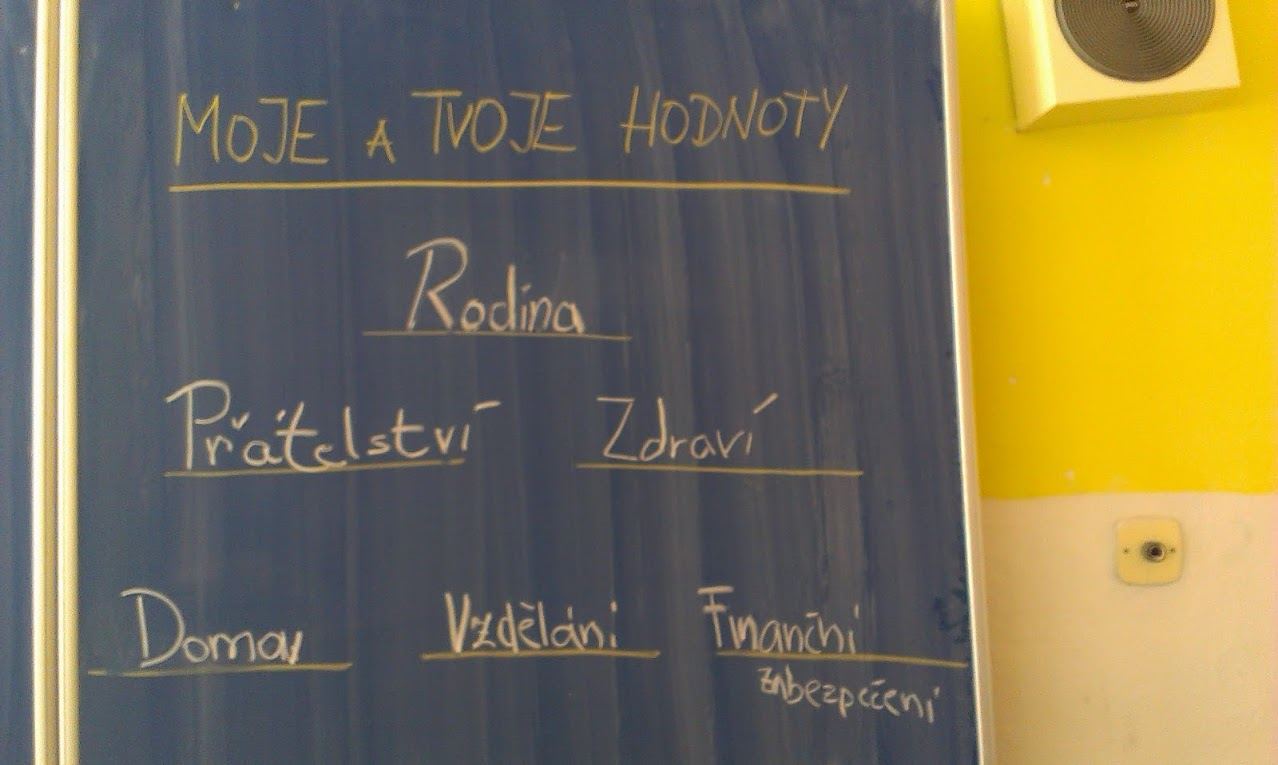 MOJE A TVOJE HODNOTY
Rodina
Přátelství Zdraví
Domov Vzdělání Finanční
zabezpečení